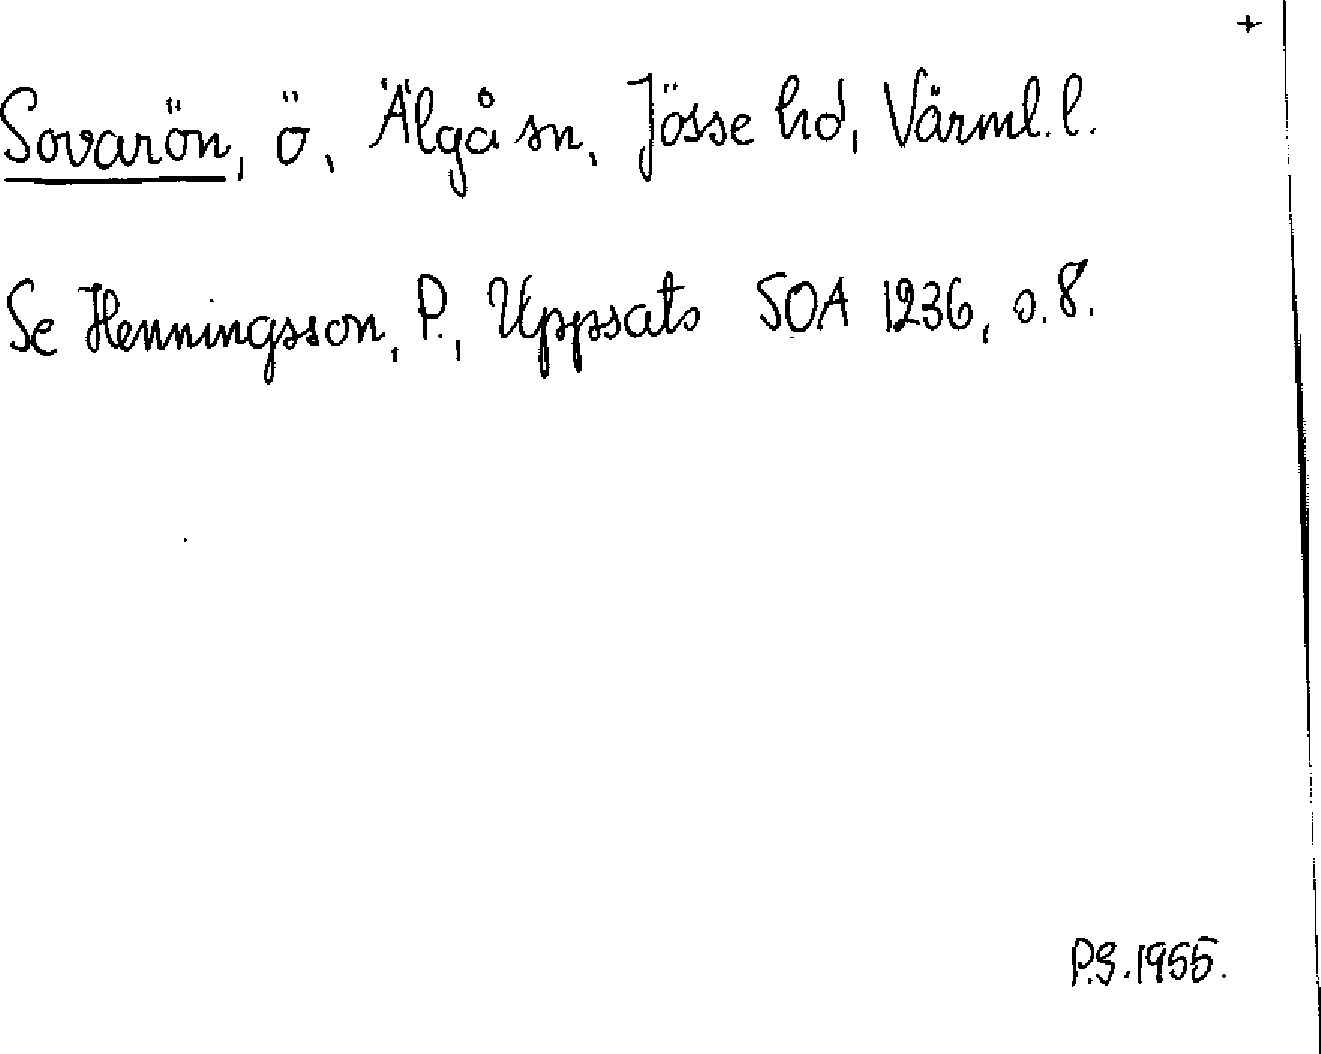 +
Sovarön, ö, Älgå sn, Jösse hd, Värml. l.
Se Henningsson, P., Uppsats SOA 1236, s. 8.
P.G. 1955.